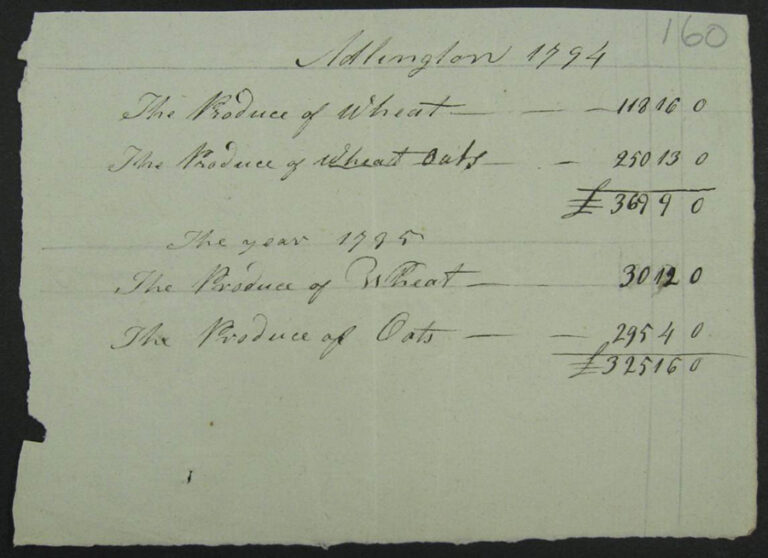 160
Adlington 1794
The Produce of Wheat — — — 118 16 0
The Produce of Wheat Oats — — 250 13 0
£ 369 9 0
The year 1795
The Produce of Wheat — — 30 12 0
The Produce of Oats — — — 295 4 0
£ 325 16 0